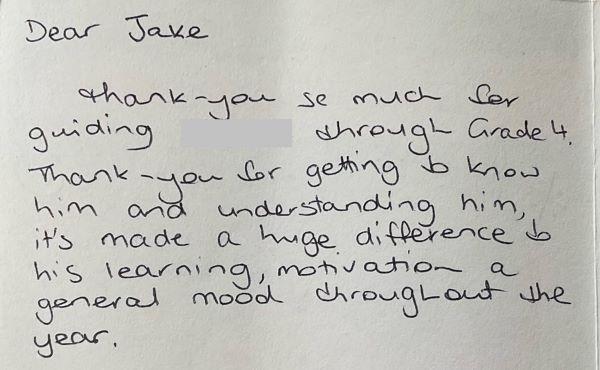 Dear Jake
Thank-you so much for
guiding through Grade 4.
Thank-you for getting to know
him and understanding him,
it's made a huge difference to
his learning, motivation a
general mood throughout the
year.